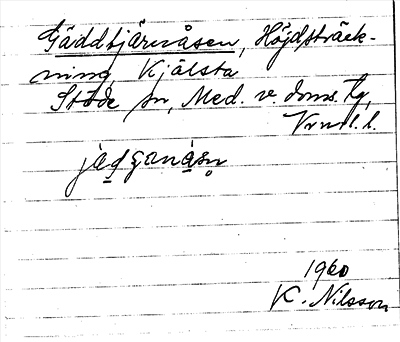 Gäddtjärnåsen, Höjdsträck-
ning, Kjälsta
Stöde sn, Med. v. doms. tg,
Vrnl. l.
jädʒanåsn̥
1960
K. Nilsson